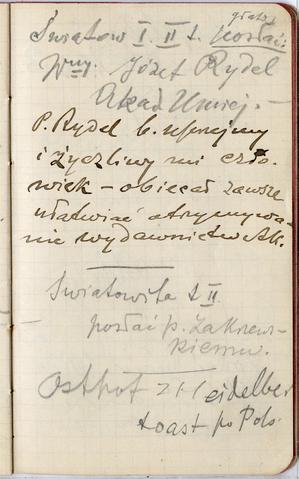 gratis
Światow I. II t. posłać
Wny. Józef Rydel
Akad Umiej. –
P. Rydel b. uprzejmy
i życzliwy mi czło-
wiek – obiecał zawsze
ułatwiać otrzymywa-
nie wydawnictw Ak.
Światowita t II
posłać p. Zakrzew-
skiemu.
Osthof z Heidelber
toast po Pols.